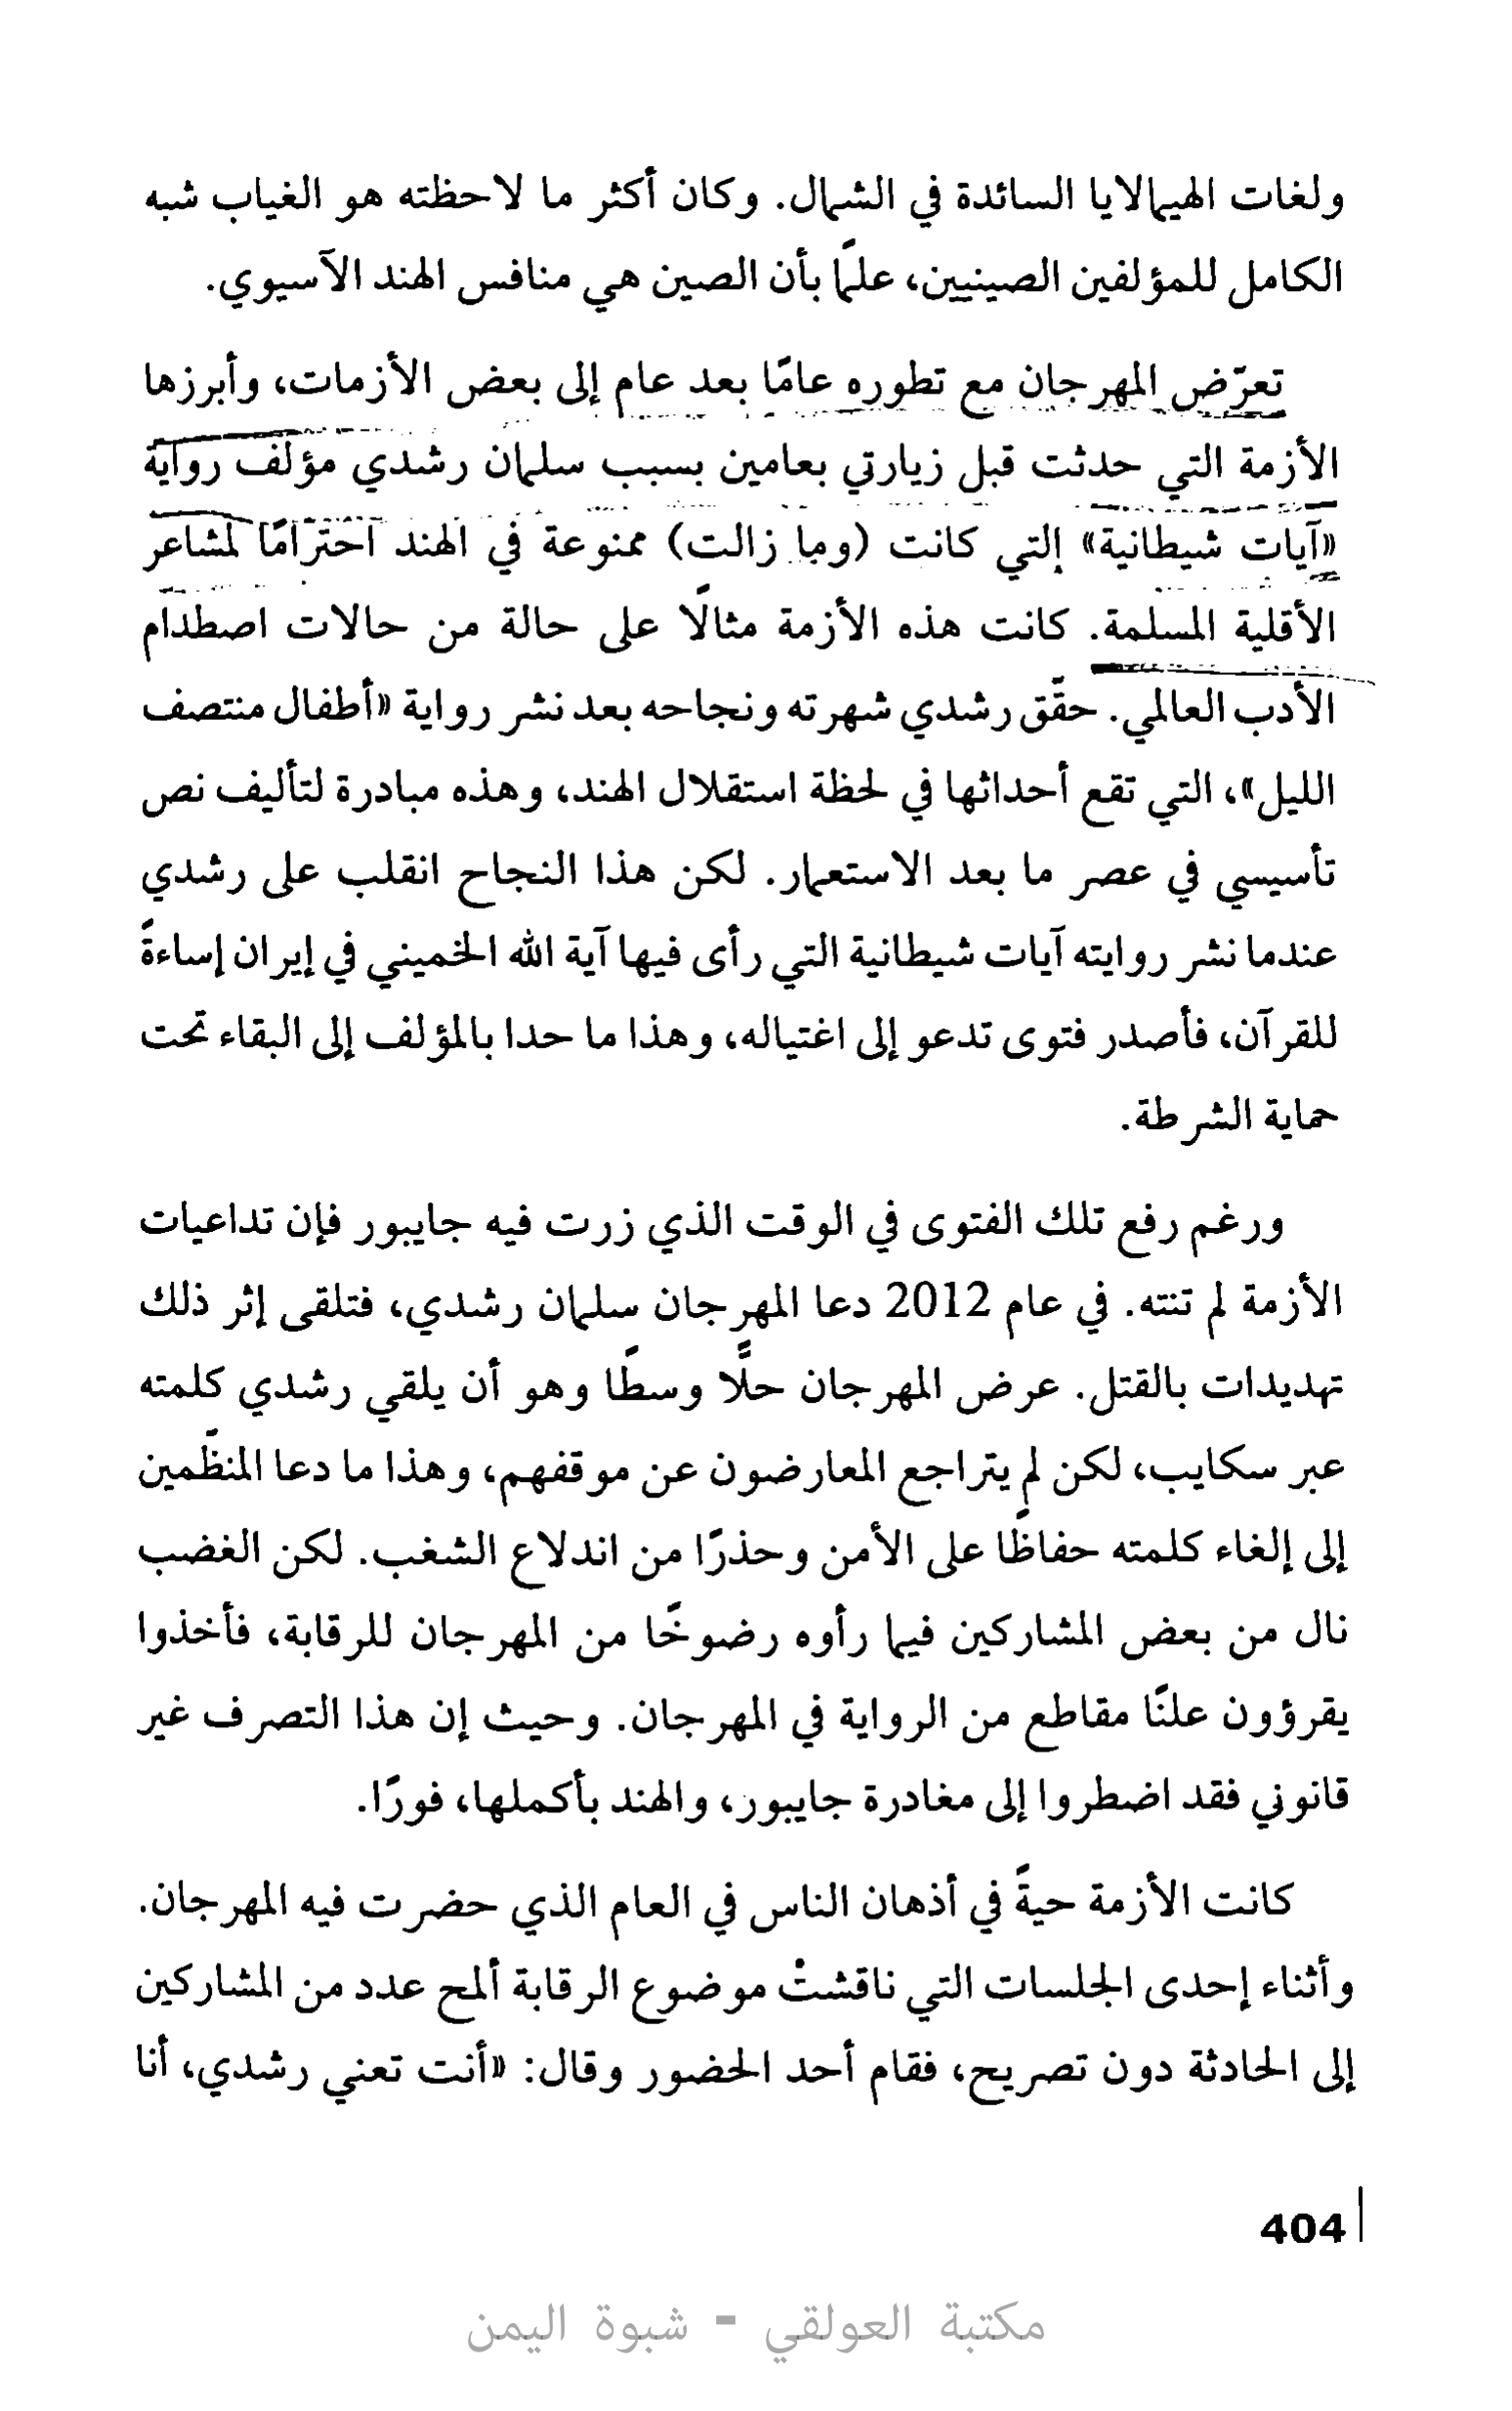 ولغات الهيمالايا السائدة في الشمال. وكان أكثر ما لاحظته هو الغياب شبه
الكامل للمؤلفين الصينيين، علمًا بأن الصين هي منافس الهند الآسيوي.
تعرّض المهرجان مع تطوره عامًا بعد عام إلى بعض الأزمات، وأبرزها
الأزمة التي حدثت قبل زيارتي بعامين بسبب سلمان رشدي مؤلف رواية
«آيات شيطانية» التي كانت (وما زالت) ممنوعة في الهند احترامًا لمشاعر
الأقلية المسلمة. كانت هذه الأزمة مثالًا على حالة من حالات اصطدام
الأدب العالمي. حقّق رشدي شهرته ونجاحه بعد نشر رواية «أطفال منتصف
الليل»، التي تقع أحداثها في لحظة استقلال الهند، وهذه مبادرة لتأليف نص
تأسيسي في عصر ما بعد الاستعمار. لكن هذا النجاح انقلب على رشدي
عندما نشر روايته آيات شيطانية التي رأى فيها آية الله الخميني في إيران إساءةً
للقرآن، فأصدر فتوى تدعو إلى اغتياله، وهذا ما حدا بالمؤلف إلى البقاء تحت
حماية الشرطة.
ورغم رفع تلك الفتوى في الوقت الذي زرت فيه جايبور فإن تداعيات
الأزمة لم تنته. في عام 2012 دعا المهرجان سلمان رشدي، فتلقى إثر ذلك
تهديدات بالقتل. عرض المهرجان حلًّا وسطًا وهو أن يلقي رشدي كلمته
عبر سكايب، لكن لم يتراجع المعارضون عن موقفهم، وهذا ما دعا المنظّمين
إلى إلغاء كلمته حفاظًا على الأمن وحذرًا من اندلاع الشغب. لكن الغضب
نال من بعض المشاركين فيما رأوه رضوخًا من المهرجان للرقابة، فأخذوا
يقرؤون علنًا مقاطع من الرواية في المهرجان. وحيث إن هذا التصرف غير
قانوني فقد اضطروا إلى مغادرة جايبور، والهند بأكملها، فورًا.
كانت الأزمة حيةً في أذهان الناس في العام الذي حضرت فيه المهرجان.
وأثناء إحدى الجلسات التي ناقشتْ موضوع الرقابة ألمح عدد من المشاركين
إلى الحادثة دون تصريح، فقام أحد الحضور وقال: «أنت تعني رشدي، أنا
404
مكتبة العولقي - شبوة اليمن